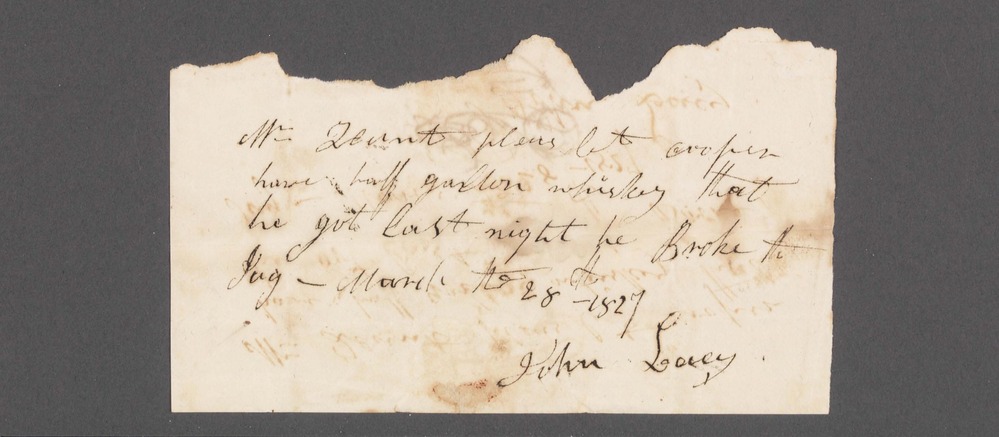 Mr Zount pleas let cooper
have half gallon whiskey that
he got last night he Broke th
Jug – March the 28th 1827
John Lacey.